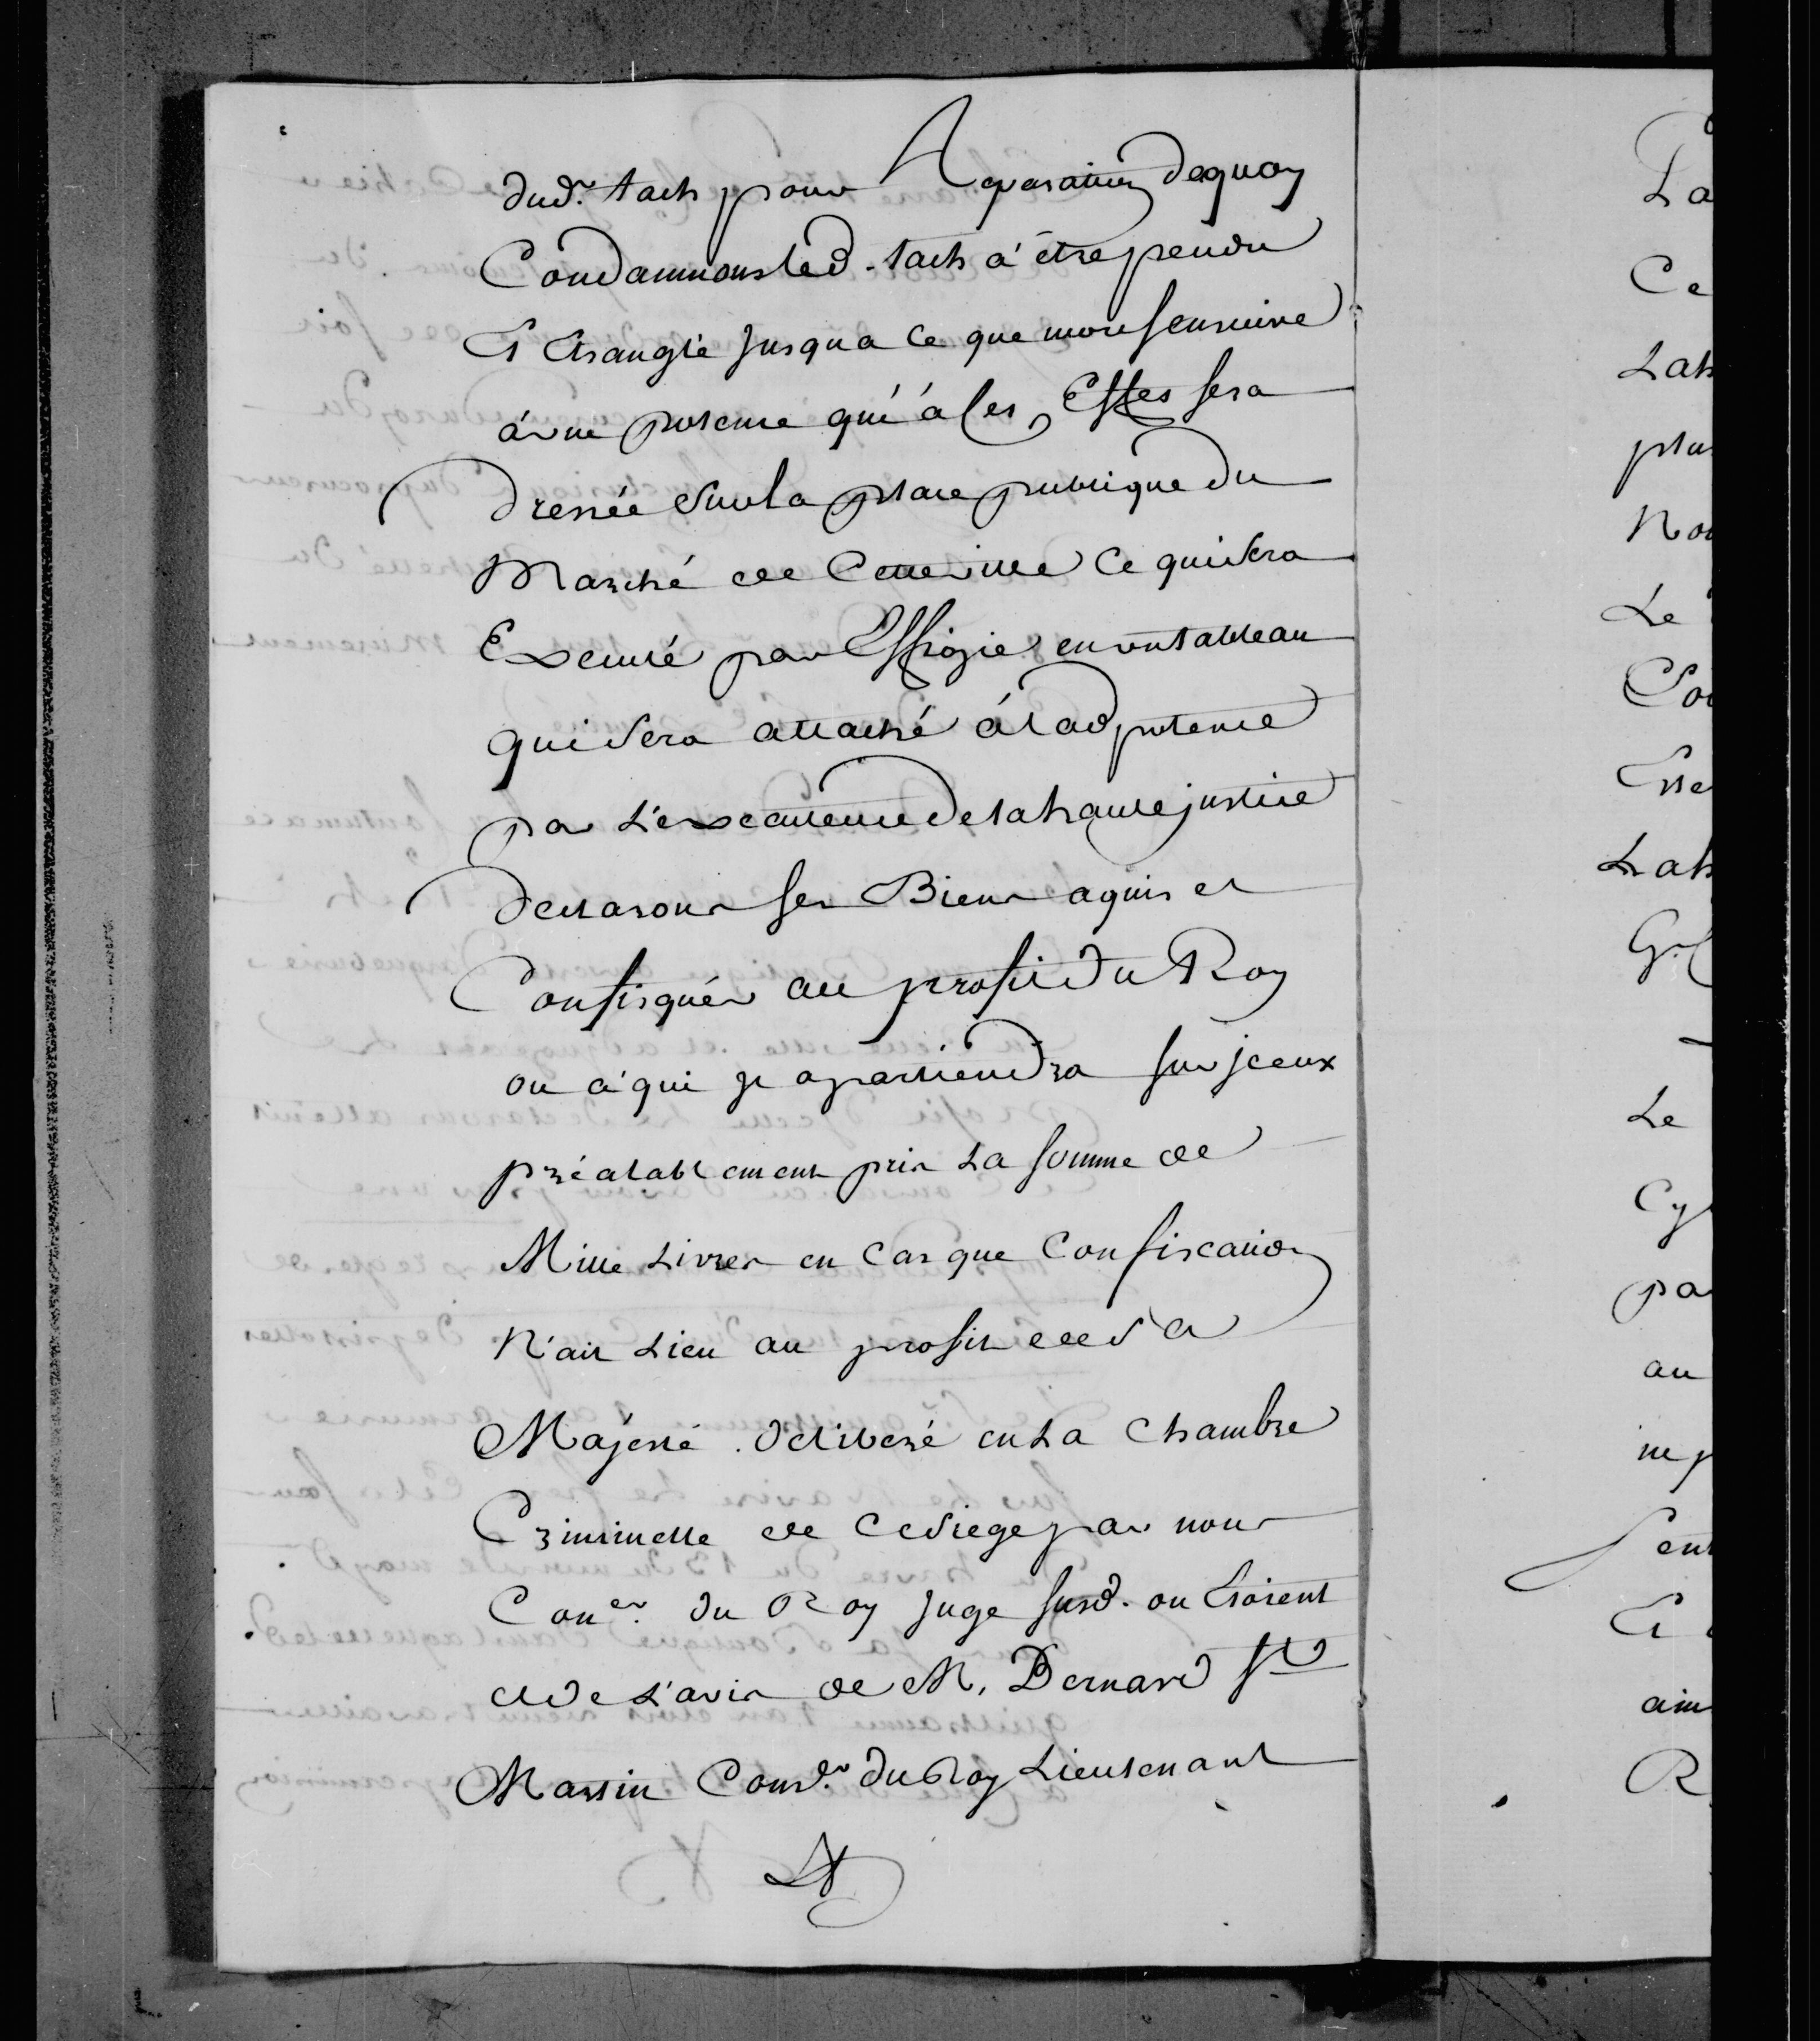 dud.^t tach pour Reparation dequoy
Condamnons led. tach a être pendu
Et Etranglé Jusqua ce que mort sensuive
á une potence qui á ces Effes sera
dressée sur la place publique du
Marché de Cette ville Ce qui sera
Executé par Effigie en un tableau
qui sera attaché á lad potence
par L'executeur de la haute justice
declarons ses Biens aquis et
Confisqués au profit du Roy
ou a qui Jl apartiendra sur jceux
préalablement pris La somme de
Mille Livres en Cas que Confiscation
N'ait Lieu au profit de Sa
Majesté . deliberé en La Chambre
Criminelle de Ce siege par nous
Con^er. du Roy Juge susd. ou Etoient
et de L'avis de M. Bernard
Massin Cons^er du Roy Lieutenant
La
Ce
Lah
plu
Nou
Le
Cou
Lah
Le
Cy
pa
au
Sent
Et
ain
R